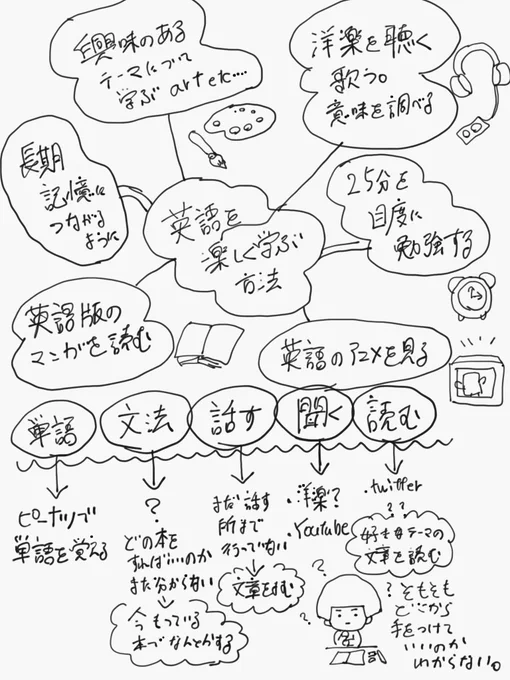 興味のある
テーマについて
学ぶ art etc....
洋楽を聴く
歌う。
意味を調べる
長期
記憶に
つながる
ように
英語を
楽しく学ぶ
方法
25分を
目度に
勉強する
英語版の
マンガを読む
英語のアニメを見る
単語
文法
話す
聞く
読む
ピーナツで
単語を覚える
?
どの本を
すればいいのか
まだ分からない
今もっている
本でなんとかする
まだ話す
所まで
行ってない
文章をよむ
・洋楽?
・Youtube
・twitter
??
好きなテーマの
文章を読む
?
?
? そもそも
どこから
手をつけて
いいのか
わからない。